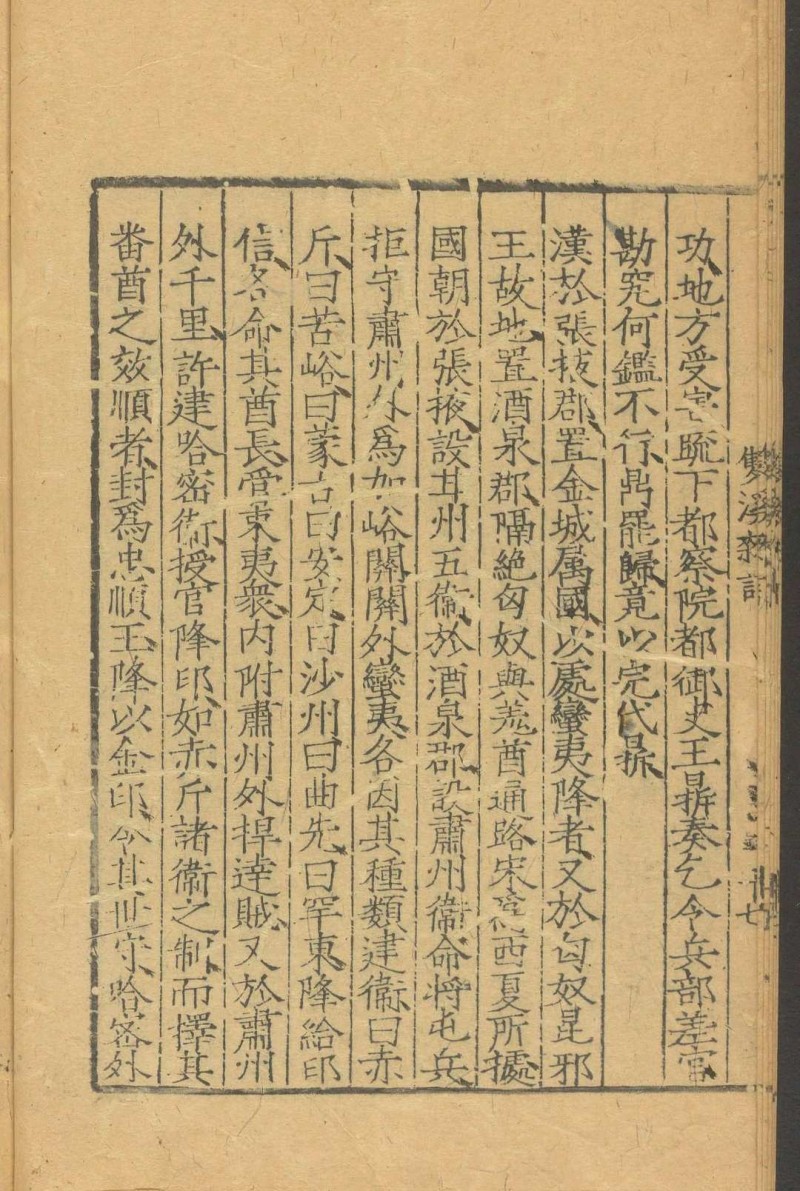 雙溪雜記
功地方受害疏下都察院都御史王㬙奏乞令兵部差官
勘究何鑑不行㬙罷歸竟以完代㬙
漢於張掖郡置金城属國以處蠻夷降者又於匈奴昆邪
王故地置酒泉郡隔絶匈奴與羗酋通路宋為西夏所㩀
國朝於張掖設甘州五衞於酒泉郡設肅州衞命將屯兵
拒守肅州外為加峪關關外蠻夷各因其種類建衞曰赤
斤曰苦峪曰蒙古曰安定曰沙州曰曲先曰罕東降給印
信各命其酋長管束夷衆内附肅州外捍達賊又於肅州
外千里許建哈密衞授官降印如赤斤諸衞之制而擇其
畨酋之效順者封為忠順王降以金印令其世守哈密外